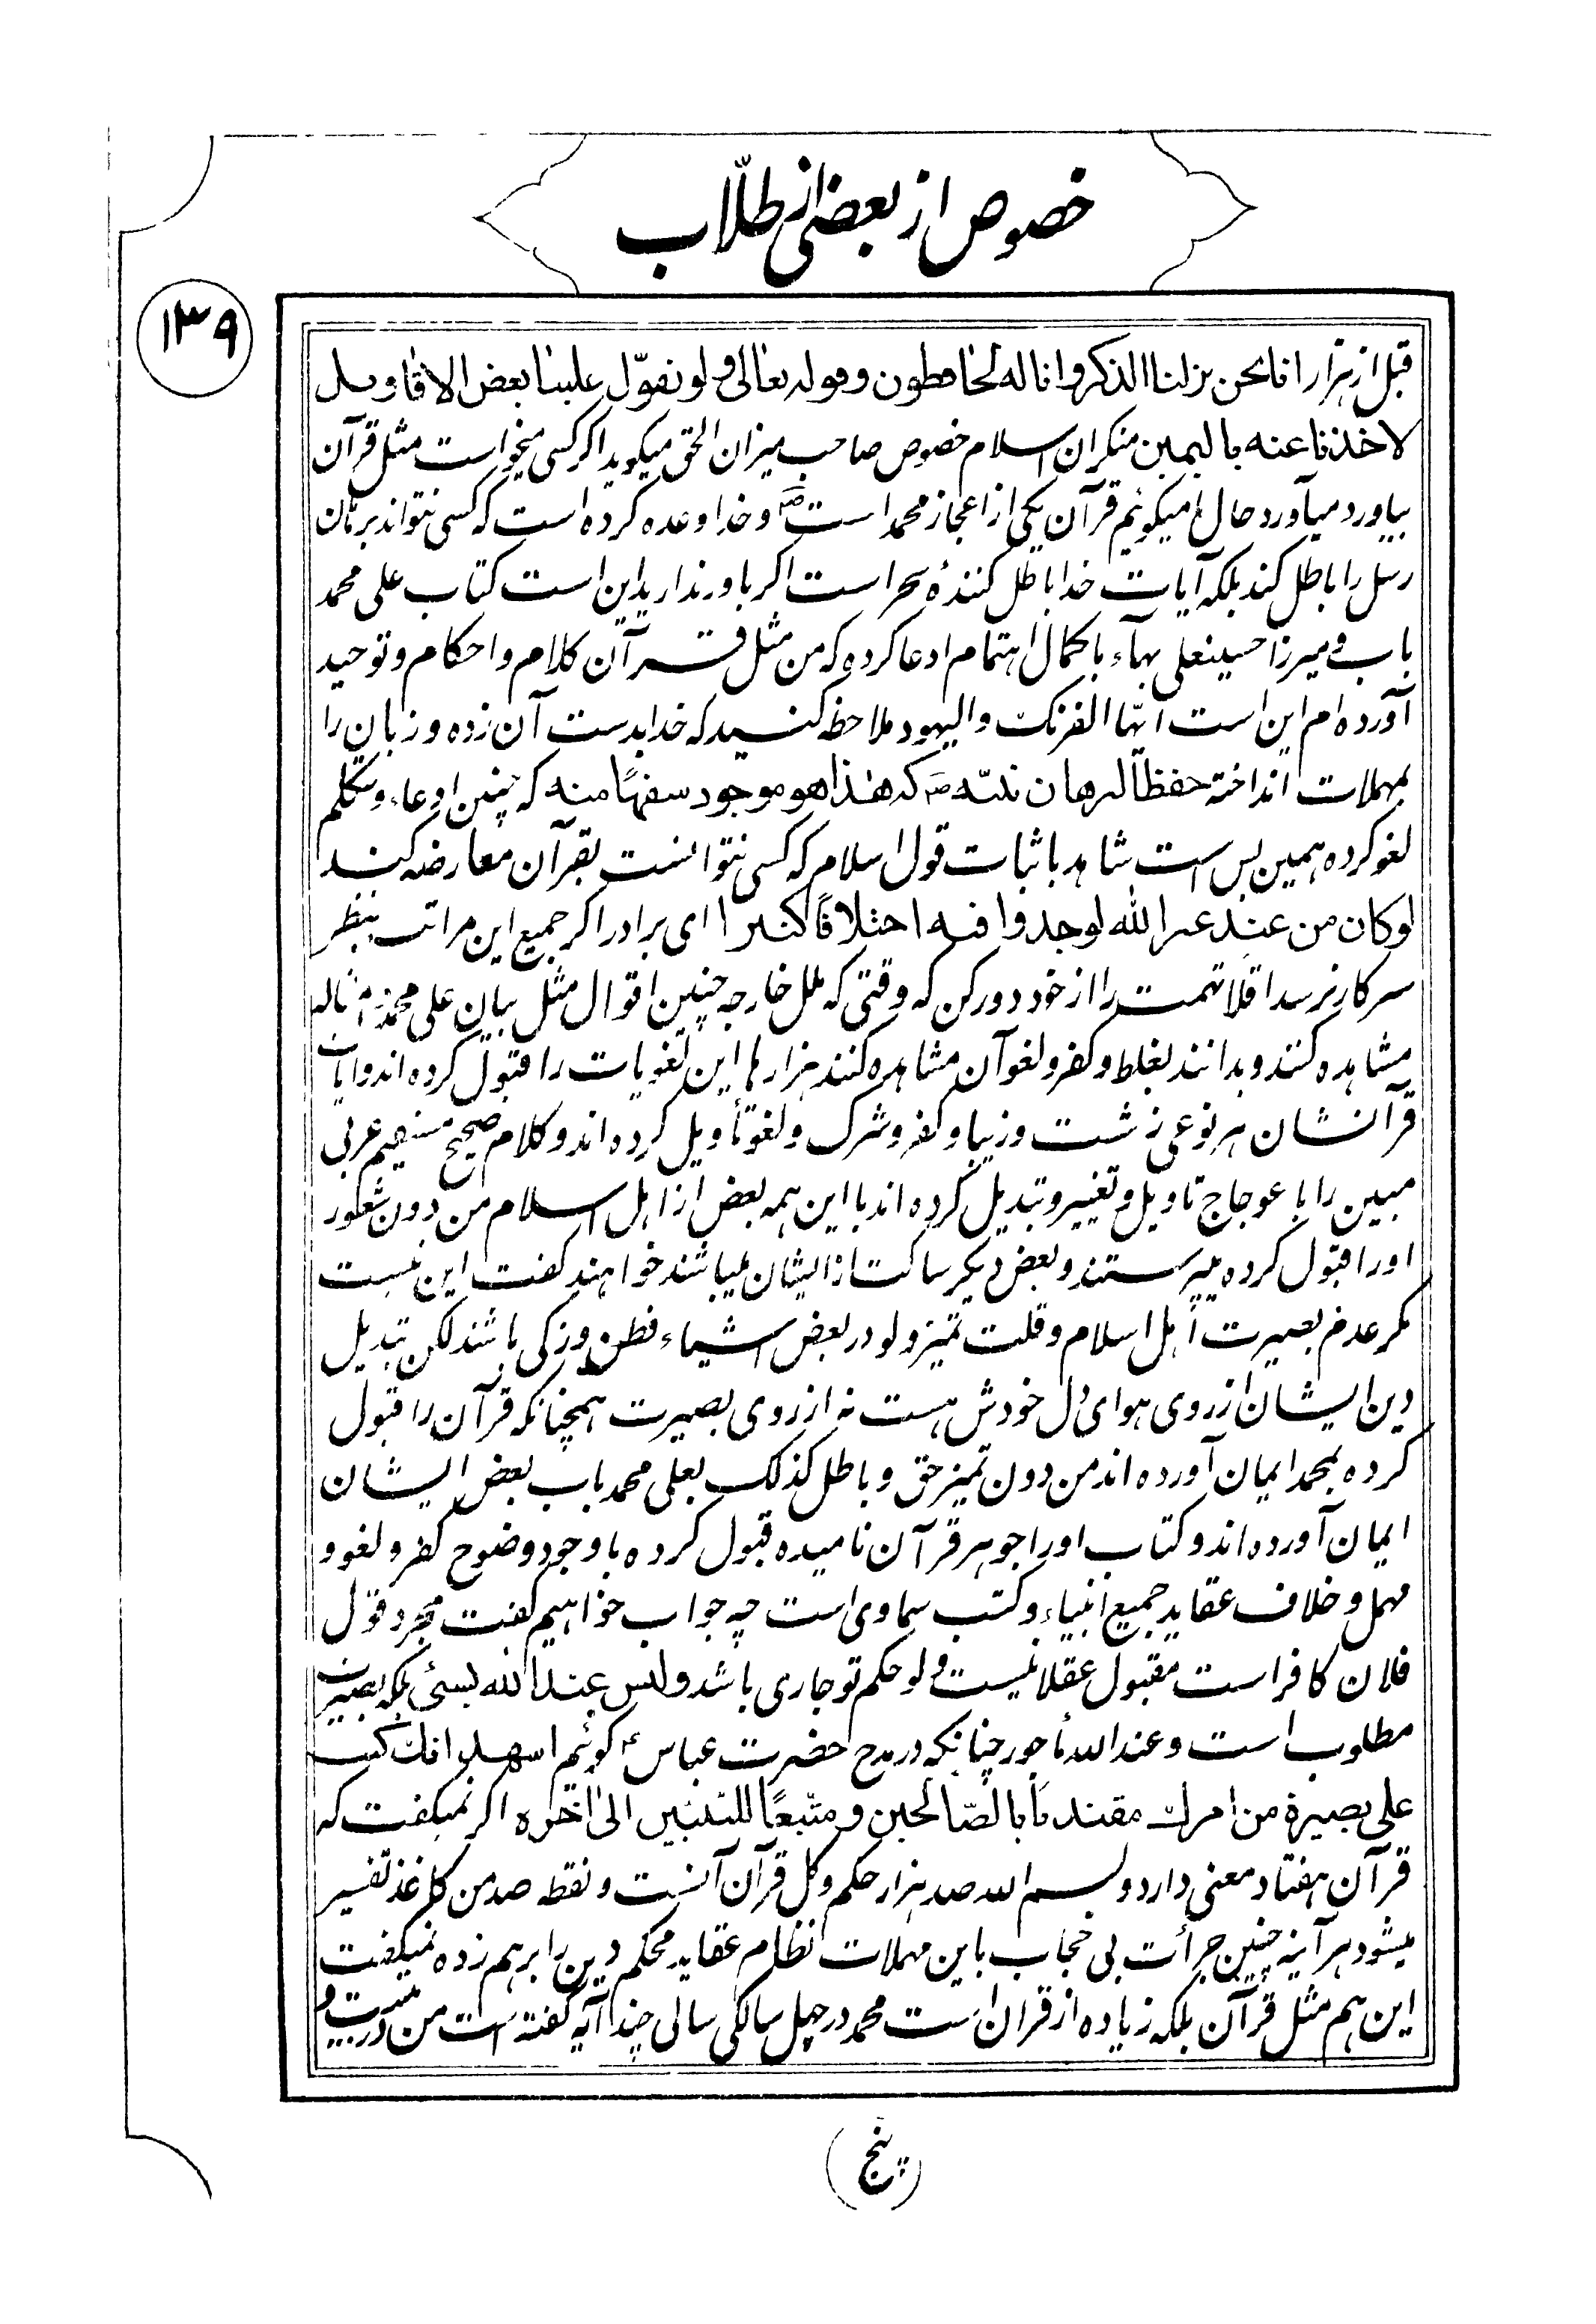 خصوص از بعضی از طلّاب
۱۳۹
قبل از هزار انا نحن نزلنا الذکر و انا له لحافظون و قوله تعالی و لو تقوّل علینا بعض الاقاویل
لاخذنا عنه بالیمین منکران اسلام خصوص صاحب میزان الحق میکوید اکر کسی میخواست مثل قرآن
بیاورد میآورد حال میکوئیم قرآن یکی از اعجاز محمد است ص و خدا وعده کرده است که کسی نتواند برهان
رسل را باطل کند بلکه آیات خدا باطل کنندهٔ سحر است اکر باور ندارید این است کتاب علی محمد
باب و میرزا حسینعلی بهاء با کمال اهتمام ادعا کرده که من مثل قرآن کلام و احکام و توحید
آورده ام این است ایّها الفرنک و الیهود ملاحظه کنید که خدا بدست آن زده و زبان را
بمهملات انداخته حفظاً لبرهان نبیّه ص که هذا هو موجود سفهًا منه که چنین ادعاء و تکلم
لغو کرده همین بس است شاهد باثبات قول اسلام که کسی نتوانست بقرآن معارضه کند
لو کان من عند غیر الله لوجدوا فیه اختلافًا کثیرا ای برادر اکر جمیع این مراتب بنظر
سرکار نرسد اقلا تهمت را از خود دور کن که وقتی که ملل خارجه چنین اقوال مثل بیان علی محمد و امثاله
مشاهده کنند و بدانند بغلط و کفر و لغو آن مشاهده کنند هزارها این لغویات را قبول کرده اند و ایات
قرآنشان هر نوعی زشت و زیبا و کفر و شرک و لغو تأویل کرده اند و کلام صحیح مستقیم عربی
مبین را باعوجاج تاویل و تغییر و تبدیل کرده اند با این همه بعض از اهل اسلام من دون شعور
او را قبول کرده میپرستند و بعض دیکر ساکت از ایشان میباشند خواهند کفت این نیست
مکر عدم بصیرت اهل اسلام و قلت تمیز و لو در بعض اشیاء فطن و زکی باشند لکن تبدیل
دین ایشان از روی هوای دل خودش هست نه از روی بصیرت همچنانکه قرآن را قبول
کرده بمحمد ایمان آورده اند من دون تمیز حق و باطل کذلک بعلی محمد باب بعض ایشان
ایمان آورده اند و کتاب او را جوهر قرآن نامیده قبول کرده با وجود وضوح کفر و لغو و
مهمل و خلاف عقاید جمیع انبیاء و کتب سماوی است چه جواب خواهیم کفت مجرد قول
فلان کافر است مقبول عقلا نیست و لو حکم تو جاری باشد و لیس عند الله بشئ بلکه بصیرت
مطلوب است و عند الله مأجور چنانکه در مدح حضرت عباس ع کوئیم اشهد انک کنت
علی بصیرة من امرک مقتدیًا بالصّالحین و متّبعًا للنبیّین الی اخره اکر نمیکفت که
قرآن هفتاد معنی دارد و بسم الله صد هزار حکم و کل قرآن آنست و نقطه صد من کاغذ تفسیر
میشود هر آینه چنین جرأت بی حجاب باین مهملات نظام عقاید محکم دین را برهم زده نمیکفت
این هم مثل قرآن بلکه زیاده از قران است محمد در چهل سالکی سالی چند آیه کفته است من در بیست و
(پنج)